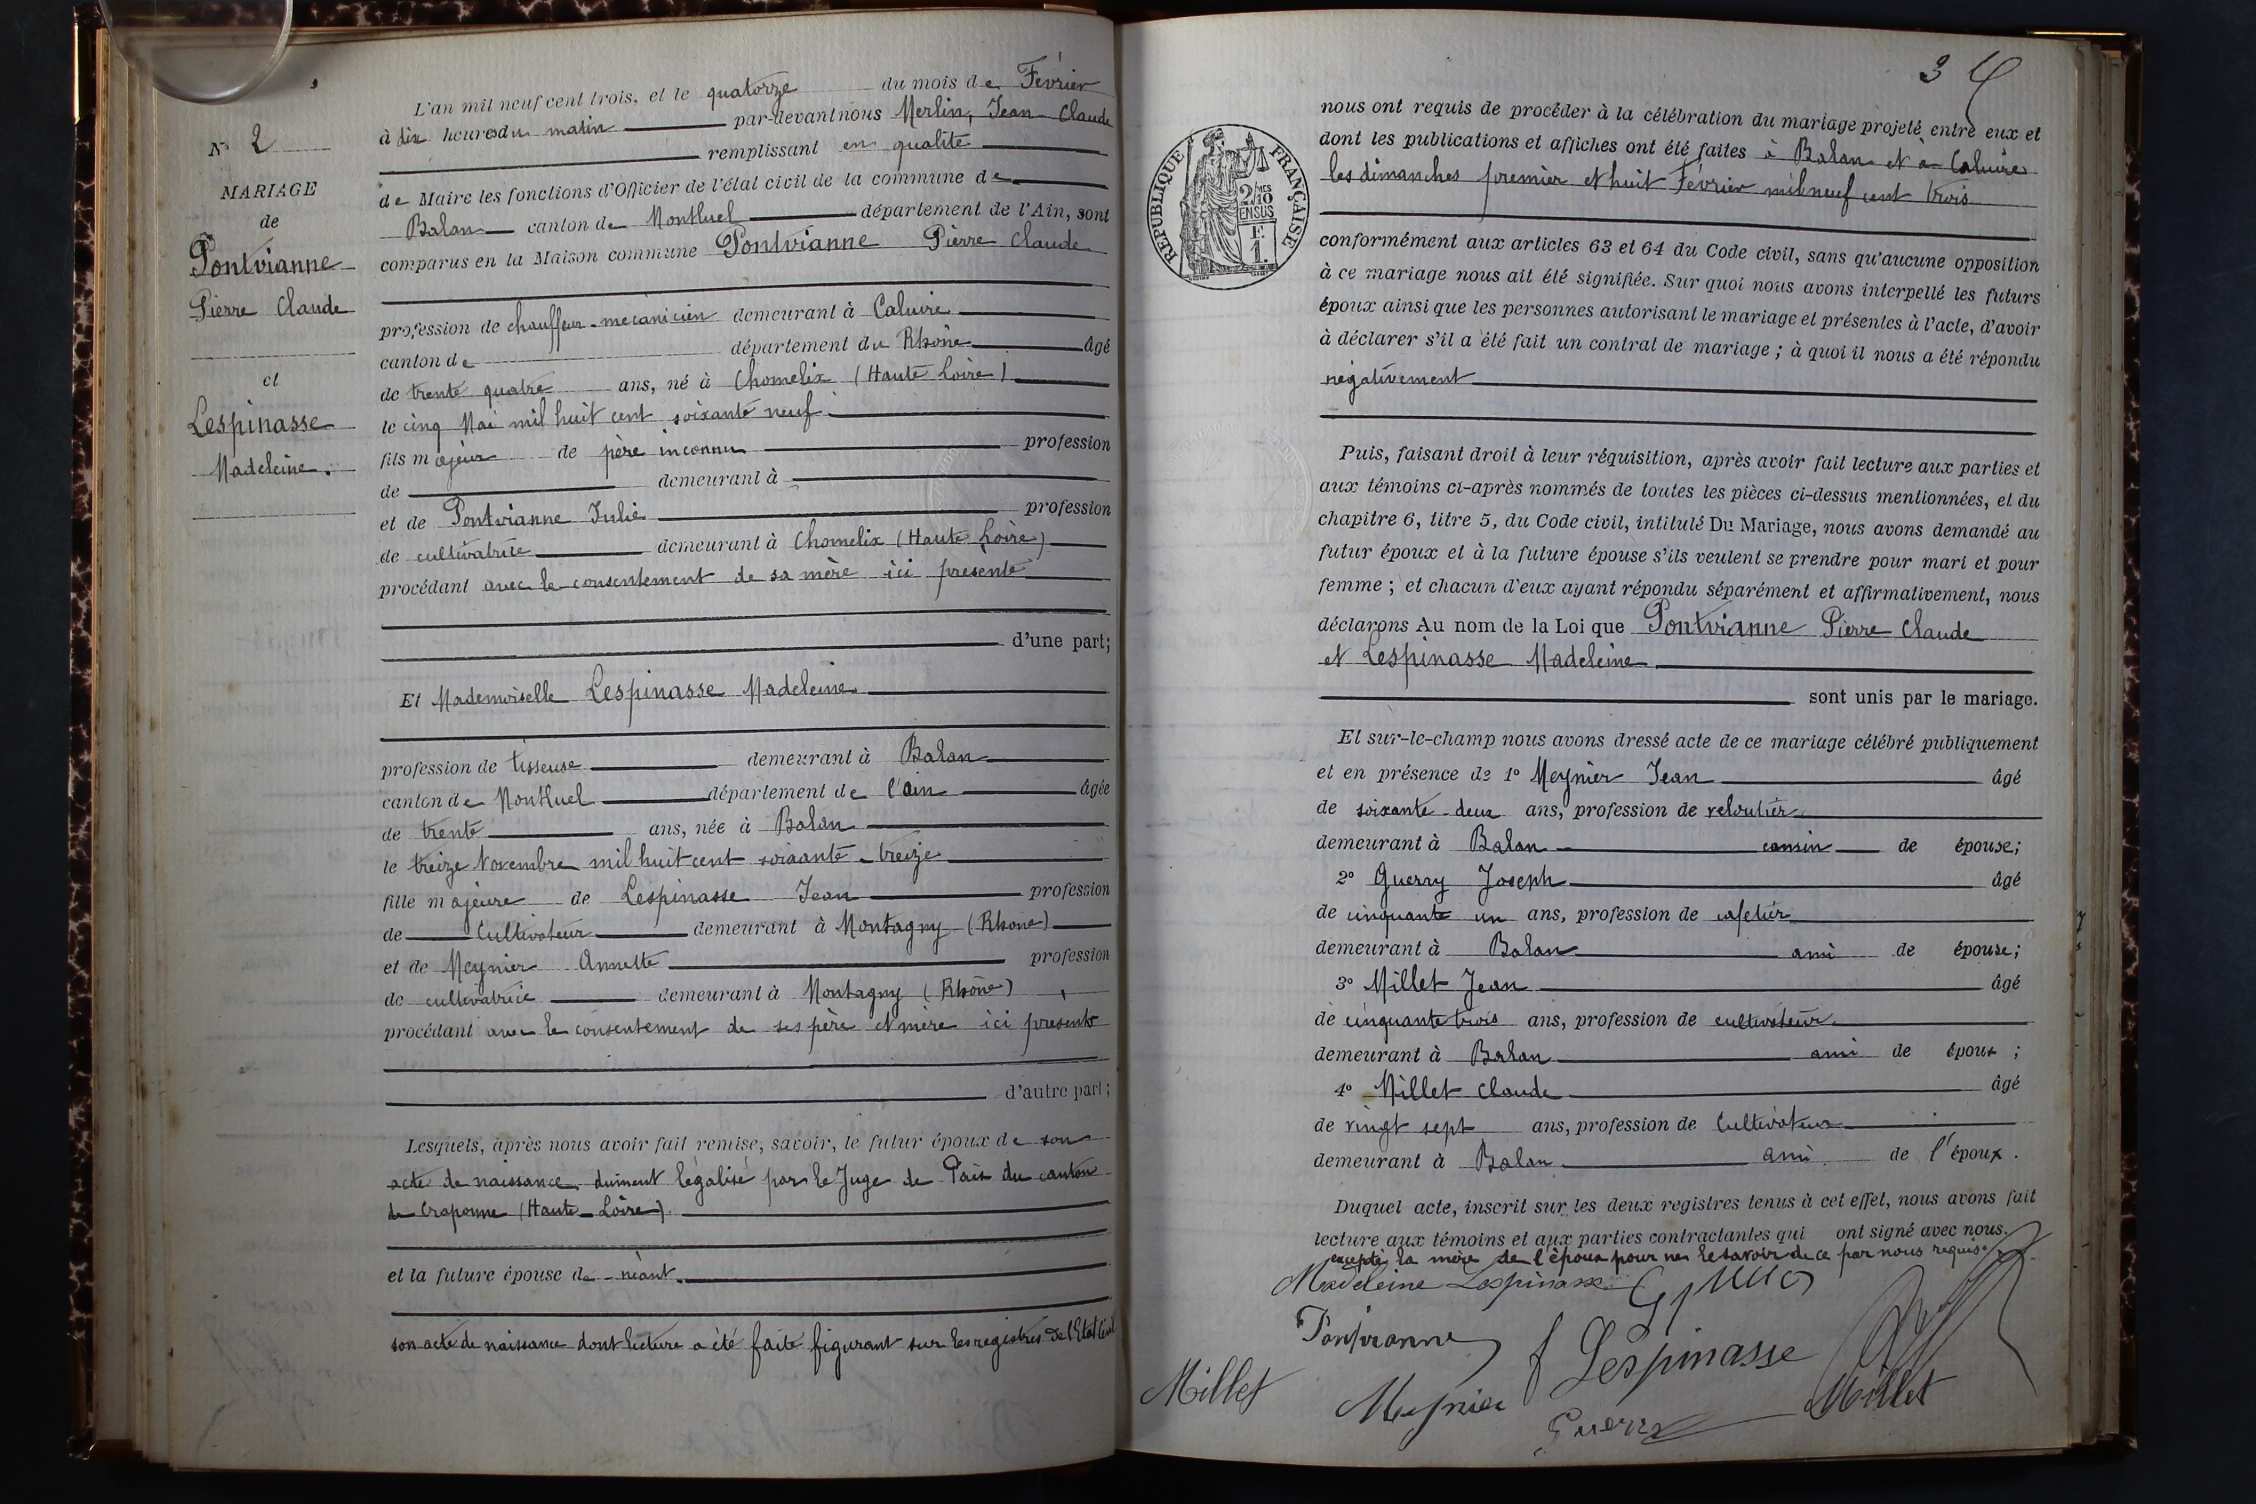 N° 2
MARIAGE
de
Pontvianne
Pierre Claude
et
Lespinasse
Madeleine.
L'an mil neuf cent trois, et le quatorze du mois de Février
à dix heures du matin par-devant nous Merlin, Jean Claude
remplissant en qualité
de Maire les fonctions d'Officier de l'état civil de la commune de
Balan canton de Montluel département de l'Ain, sont
comparus en la Maison commune Pontvianne Pierre Claude
profession de chauffeur-mécanicien demeurant à Caluire
canton de département du Rhône âgé
de trente quatre ans, né à Chomelix (Haute Loire)
le cinq Mai mil huit cent soixante neuf
fils majeur de père inconnu profession
de demeurant à
et de Pontvianne Julie profession
de cultivatrice demeurant à Chomelix (Haute Loire)
procédant avec le consentement de sa mère ici présente
d'une part;
Et Mademoiselle Lespinasse Madeleine
profession de tisseuse demeurant à Balan
canton de Montluel département de l'ain âgée
de trente ans, née à Balan
le treize Novembre mil huit cent soixante-treize
fille majeure de Lespinasse Jean profession
de Cultivateur demeurant à Montagny (Rhône)
et de Meynier Annette profession
de cultivatrice demeurant à Montagny (Rhône)
procédant avec le consentement de ses père et mère ici présents
d'autre part;
Lesquels, après nous avoir fait remise, savoir, le futur époux de son
acte de naissance dument légalisé par le Juge de Paix du canton
de Craponne (Haute-Loire)
et la future épouse de néant.
son acte de naissance dont lecture a été faite figurant sur les registres de l'Etat Civil
34
RÉPUBLIQUE FRANÇAISE
2/10
EN SUS
F.
1.
nous ont requis de procéder à la célébration du mariage projeté entre eux et
dont les publications et affiches ont été faites à Balan et à Caluire
les dimanches premier et huit Février mil neuf cent trois
conformément aux articles 63 et 64 du Code civil, sans qu'aucune opposition
à ce mariage nous ait été signifiée. Sur quoi nous avons interpellé les futurs
époux ainsi que les personnes autorisant le mariage et présentes à l'acte, d'avoir
à déclarer s'il a été fait un contrat de mariage; à quoi il nous a été répondu
négativement
Puis, faisant droit à leur réquisition, après avoir fait lecture aux parties et
aux témoins ci-après nommés de toutes les pièces ci-dessus mentionnées, et du
chapitre 6, titre 5, du Code civil, intitulé Du Mariage, nous avons demandé au
futur époux et à la future épouse s'ils veulent se prendre pour mari et pour
femme; et chacun d'eux ayant répondu séparément et affirmativement, nous
déclarons Au nom de la Loi que Pontvianne Pierre Claude
et Lespinasse Madeleine
sont unis par le mariage.
Et sur-le-champ nous avons dressé acte de ce mariage célébré publiquement
et en présence de 1° Meynier Jean âgé
de soixante-deux ans, profession de veloutier
demeurant à Balan cousin de épouse;
2° Guerry Joseph âgé
de cinquante un ans, profession de cafetier
demeurant à Balan ami de épouse;
3° Millet Jean âgé
de cinquante trois ans, profession de cultivateur
demeurant à Balan ami de époux;
4° Millet Claude âgé
de vingt sept ans, profession de Cultivateur
demeurant à Balan ami de l'époux.
Duquel acte, inscrit sur les deux registres tenus à cet effet, nous avons fait
lecture aux témoins et aux parties contractantes qui ont signé avec nous.
excepté la mère de l'époux pour ne le savoir de ce par nous requis.
Madeleine Lespinasse
Pontvianne
Lespinasse
Millet
Meynier
Guerry
Millet